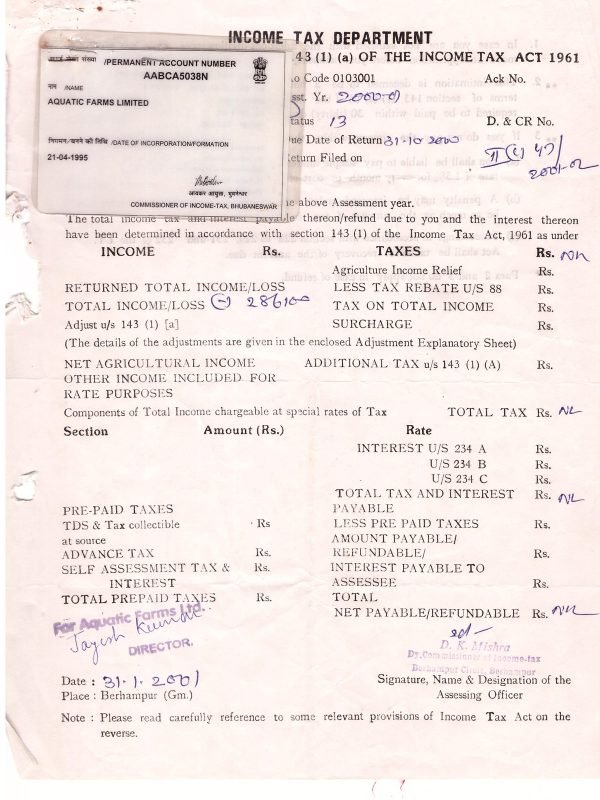 INCOME TAX DEPARTMENT
143 (1) (a) OF THE INCOME TAX ACT 1961
/PERMANENT ACCOUNT NUMBER
AABCA5038N
नाम /NAME
AQUATIC FARMS LIMITED
निगमन/बनने की तिथि /DATE OF INCORPORATION/FORMATION
21-04-1995
आयकर आयुक्त, भुवनेश्वर
COMMISSIONER OF INCOME-TAX, BHUBANESWAR
Code 0103001 Ack No.
Yr. 2000-01
13 D. & CR No.
Due Date of Return 31-10-2000
Return Filed on
2001-02
the above Assessment year.
The total income tax and interest payable thereon/refund due to you and the interest thereon
have been determined in accordance with section 143 (1) of the Income Tax Act, 1961 as under
INCOME Rs. TAXES Rs. NIL
Agriculture Income Relief Rs.
RETURNED TOTAL INCOME/LOSS LESS TAX REBATE U/S 88 Rs.
TOTAL INCOME/LOSS (-) 286100 TAX ON TOTAL INCOME Rs.
Adjust u/s 143 (1) [a] SURCHARGE Rs.
(The details of the adjustments are given in the enclosed Adjustment Explanatory Sheet)
NET AGRICULTURAL INCOME ADDITIONAL TAX u/s 143 (1) (A) Rs.
OTHER INCOME INCLUDED FOR
RATE PURPOSES
Components of Total Income chargeable at special rates of Tax TOTAL TAX Rs. NIL
Section Amount (Rs.) Rate
INTEREST U/S 234 A Rs.
U/S 234 B Rs.
U/S 234 C Rs.
TOTAL TAX AND INTEREST Rs. NIL
PRE-PAID TAXES PAYABLE
TDS & Tax collectible Rs LESS PRE PAID TAXES Rs.
at source AMOUNT PAYABLE/
ADVANCE TAX Rs. REFUNDABLE/ Rs.
SELF ASSESSMENT TAX & Rs. INTEREST PAYABLE TO Rs.
INTEREST ASSESSEE
TOTAL PREPAID TAXES Rs. TOTAL
NET PAYABLE/REFUNDABLE Rs. NIL
For Aquatic Farms Ltd.
Jayesh Kumar
DIRECTOR.
sd-
D. K. Mishra
Dy. Commissioner of Income-tax
Berhampur Circle, Berhampur
Date : 31.1.2001 Signature, Name & Designation of the
Place : Berhampur (Gm.) Assessing Officer
Note : Please read carefully reference to some relevant provisions of Income Tax Act on the
reverse.